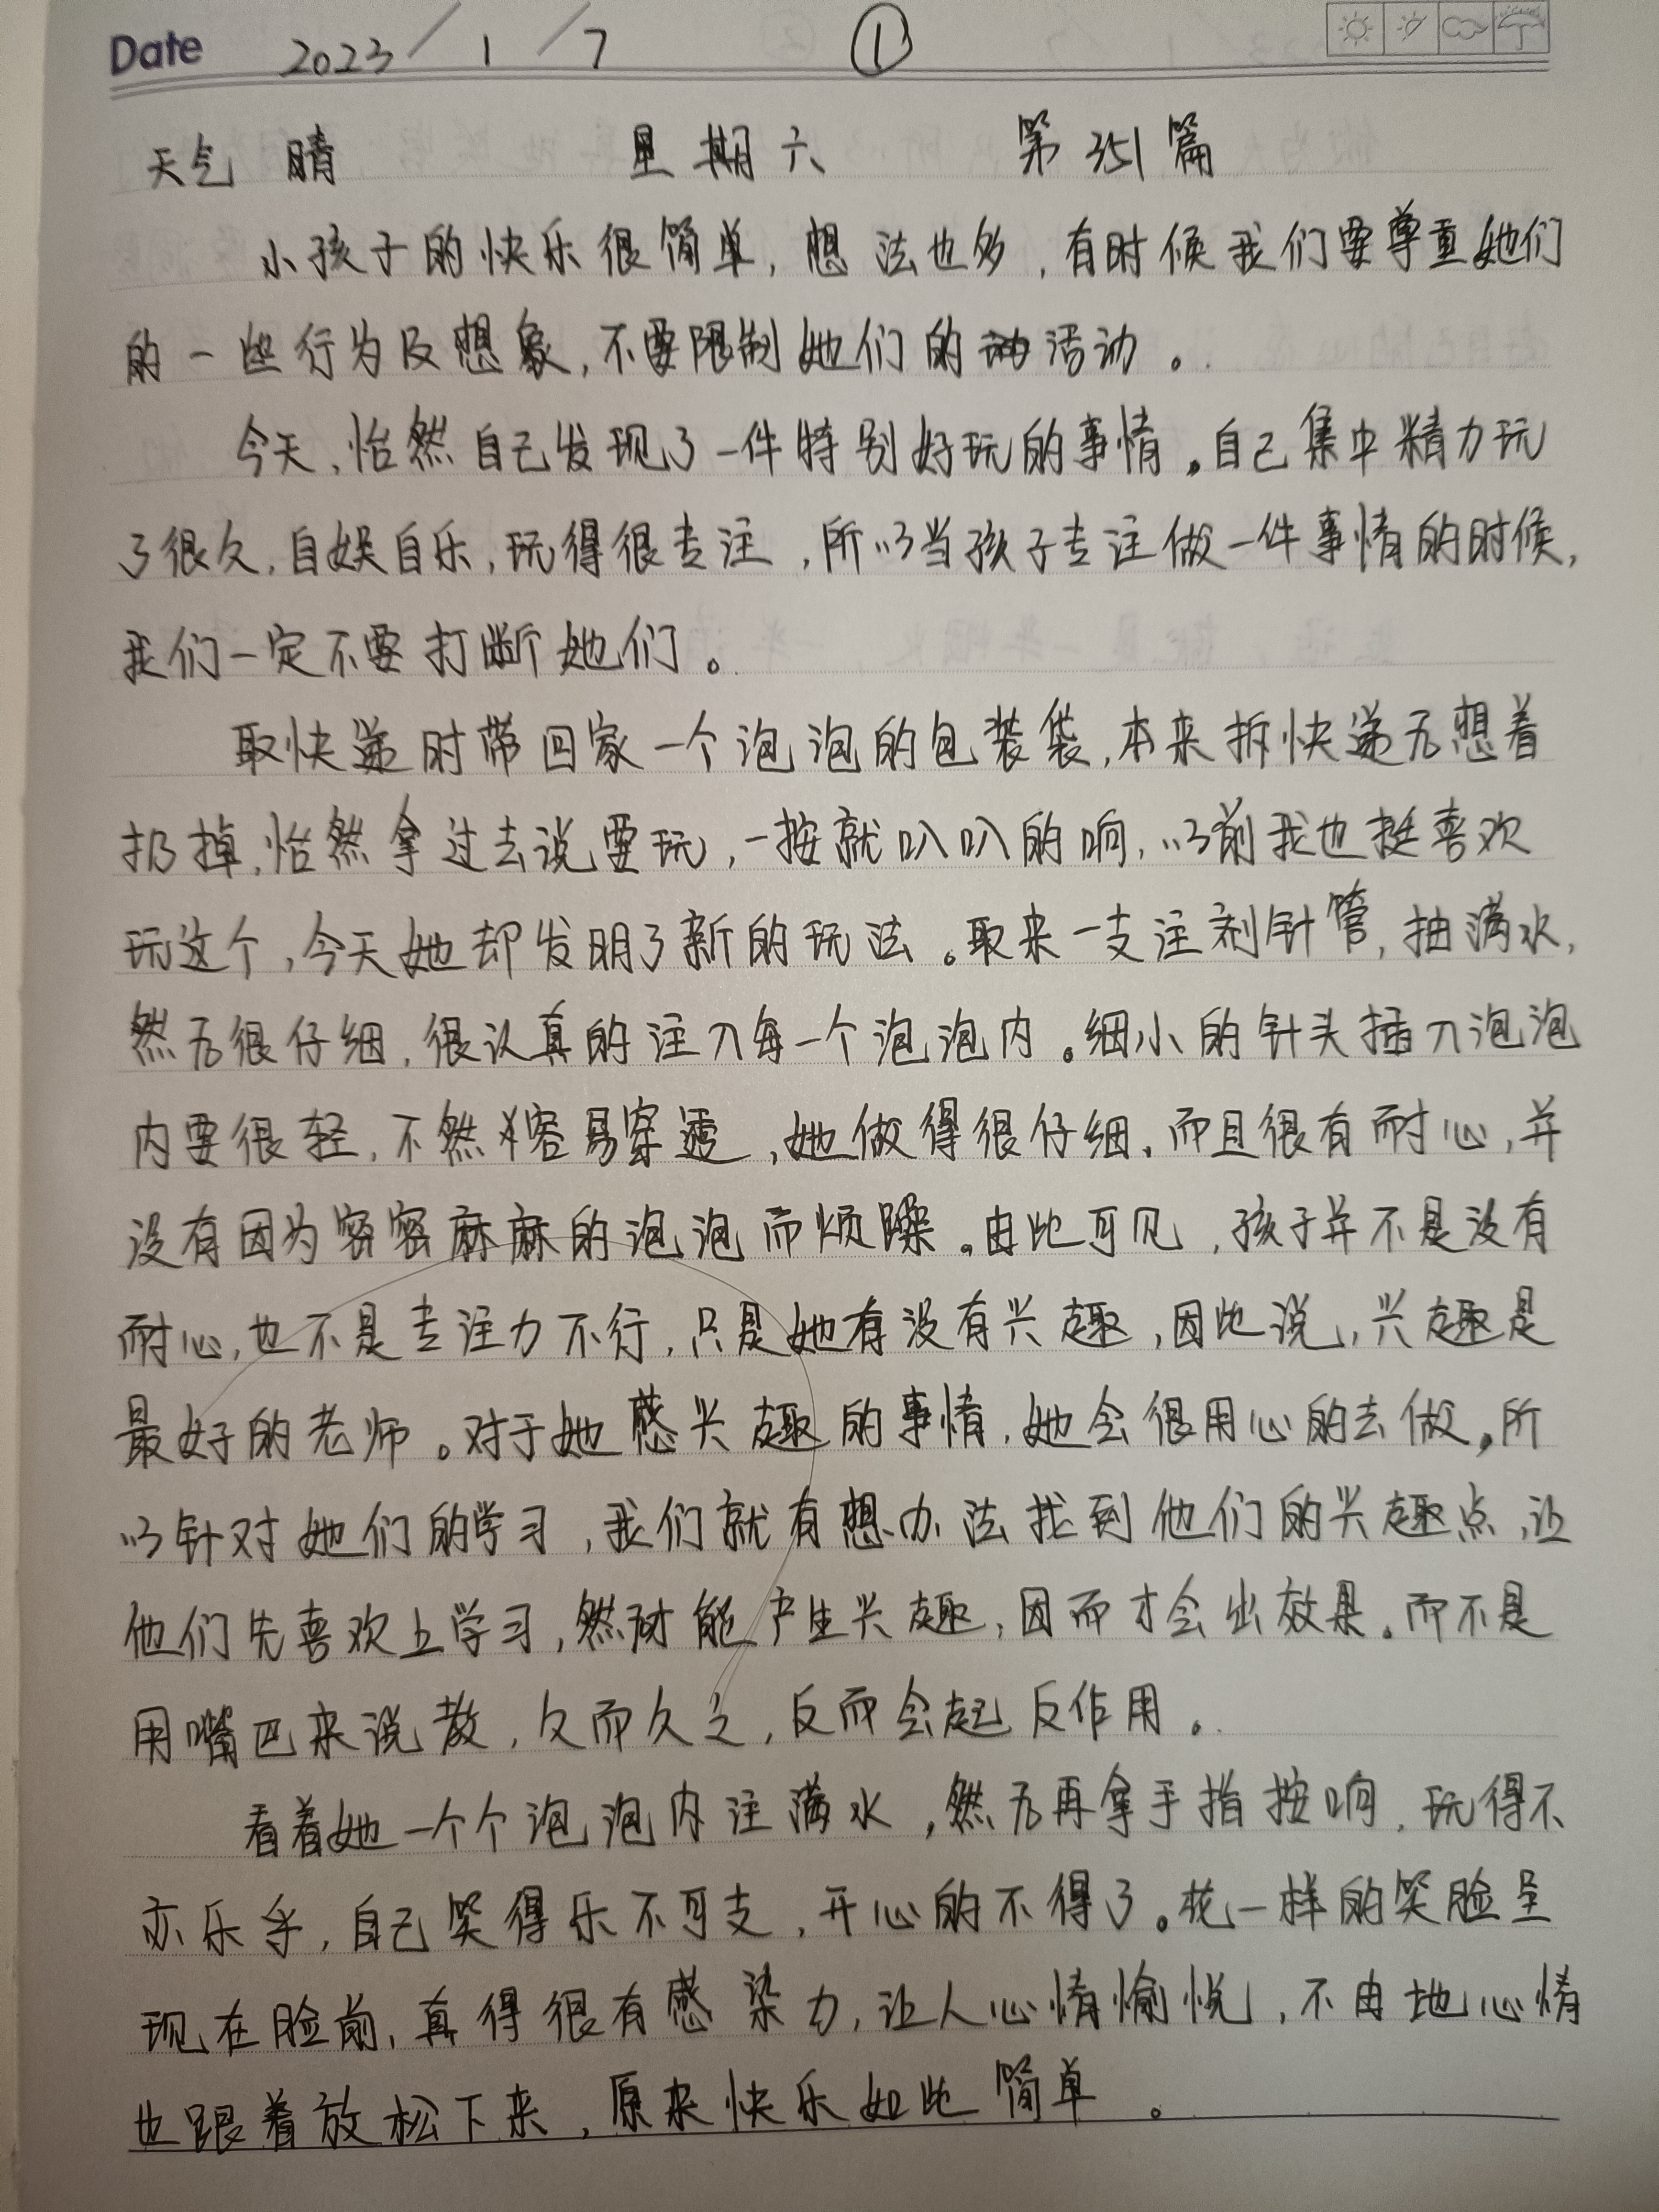 Date 2023/1/7 ①
天气 晴 星期六 第351篇
小孩子的快乐很简单，想法也多，有时候我们要尊重她们
的一些行为及想象，不要限制她们的活动。
今天，怡然自己发现了一件特别好玩的事情。自己集中精力玩
了很久，自娱自乐，玩得很专注，所以当孩子专注做一件事情的时候，
我们一定不要打断她们。
取快递时带回家一个泡泡的包装袋，本来拆快递后想着
扔掉，怡然拿过去说要玩，一按就叭叭的响，以前我也挺喜欢
玩这个，今天她却发明了新的玩法。取来一支注剂针管，抽满水，
然后很仔细，很认真的注入每一个泡泡内。细小的针头插入泡泡
内要很轻，不然容易穿透，她做得很仔细，而且很有耐心，并
没有因为密密麻麻的泡泡而烦躁。由此可见，孩子并不是没有
耐心，也不是专注力不行，只是她有没有兴趣，因此说，兴趣是
最好的老师。对于她感兴趣的事情，她会很用心的去做。所
以针对她们的学习，我们就有想办法找到他们的兴趣点，让
他们先喜欢上学习，然才能产生兴趣，因而才会出效果。而不是
用嘴巴来说教，久而久之，反而会起反作用。
看着她一个个泡泡内注满水，然后再拿手指按响，玩得不
亦乐乎，自己笑得乐不可支，开心的不得了。花一样的笑脸呈
现在脸前，真得很有感染力，让人心情愉悦，不由地心情
也跟着放松下来，原来快乐如此简单。